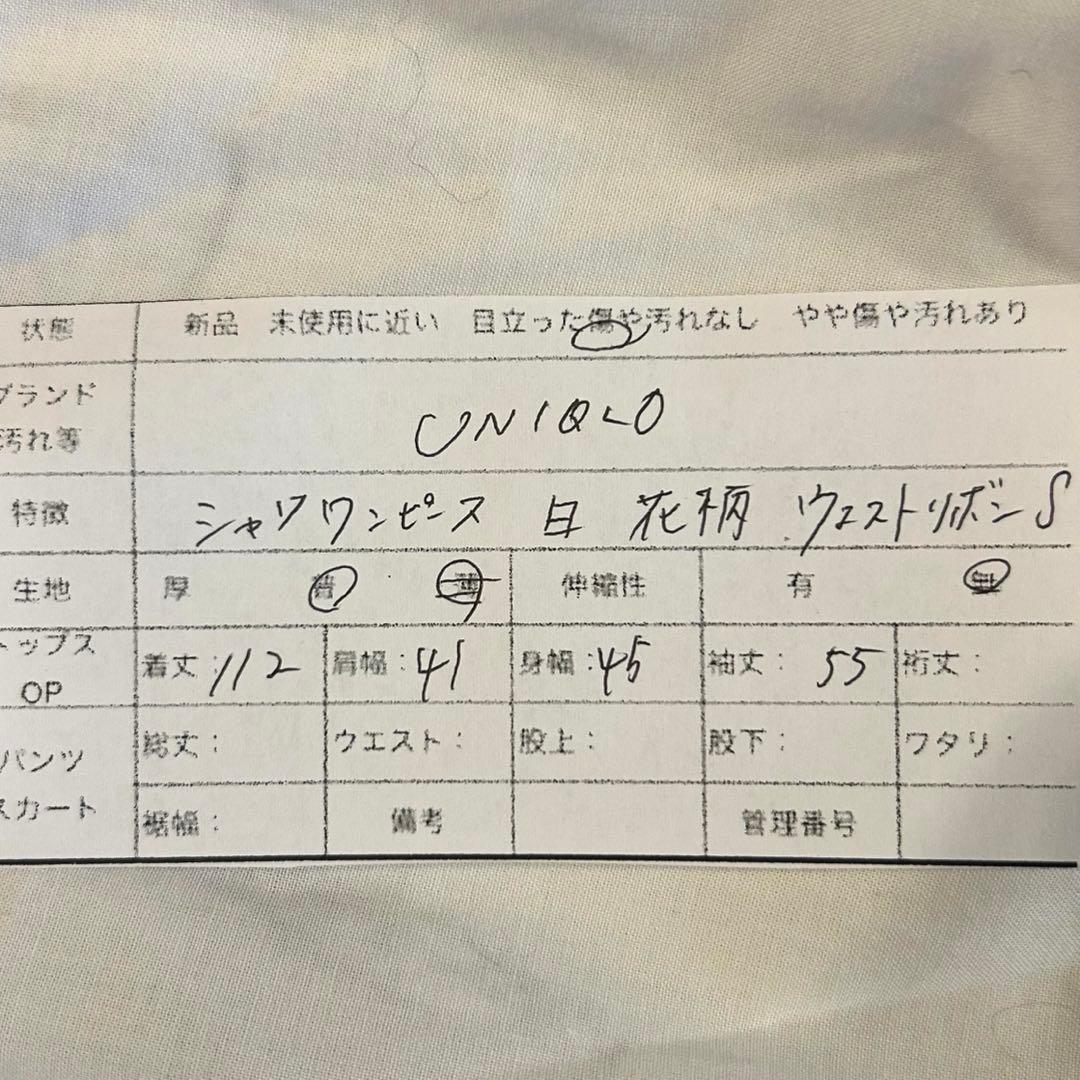 状態 新品 未使用に近い 目立った傷や汚れなし やや傷や汚れあり
ブランド
汚れ等 UNIQLO
特徴 シャツワンピース 白 花柄 ウエストリボン S
生地 厚 普 薄 伸縮性 有 無
トップス
OP 着丈：112 肩幅：41 身幅：45 袖丈：55 裄丈：
パンツ 総丈： ウエスト： 股上： 股下： ワタリ：
スカート 裾幅： 備考 管理番号